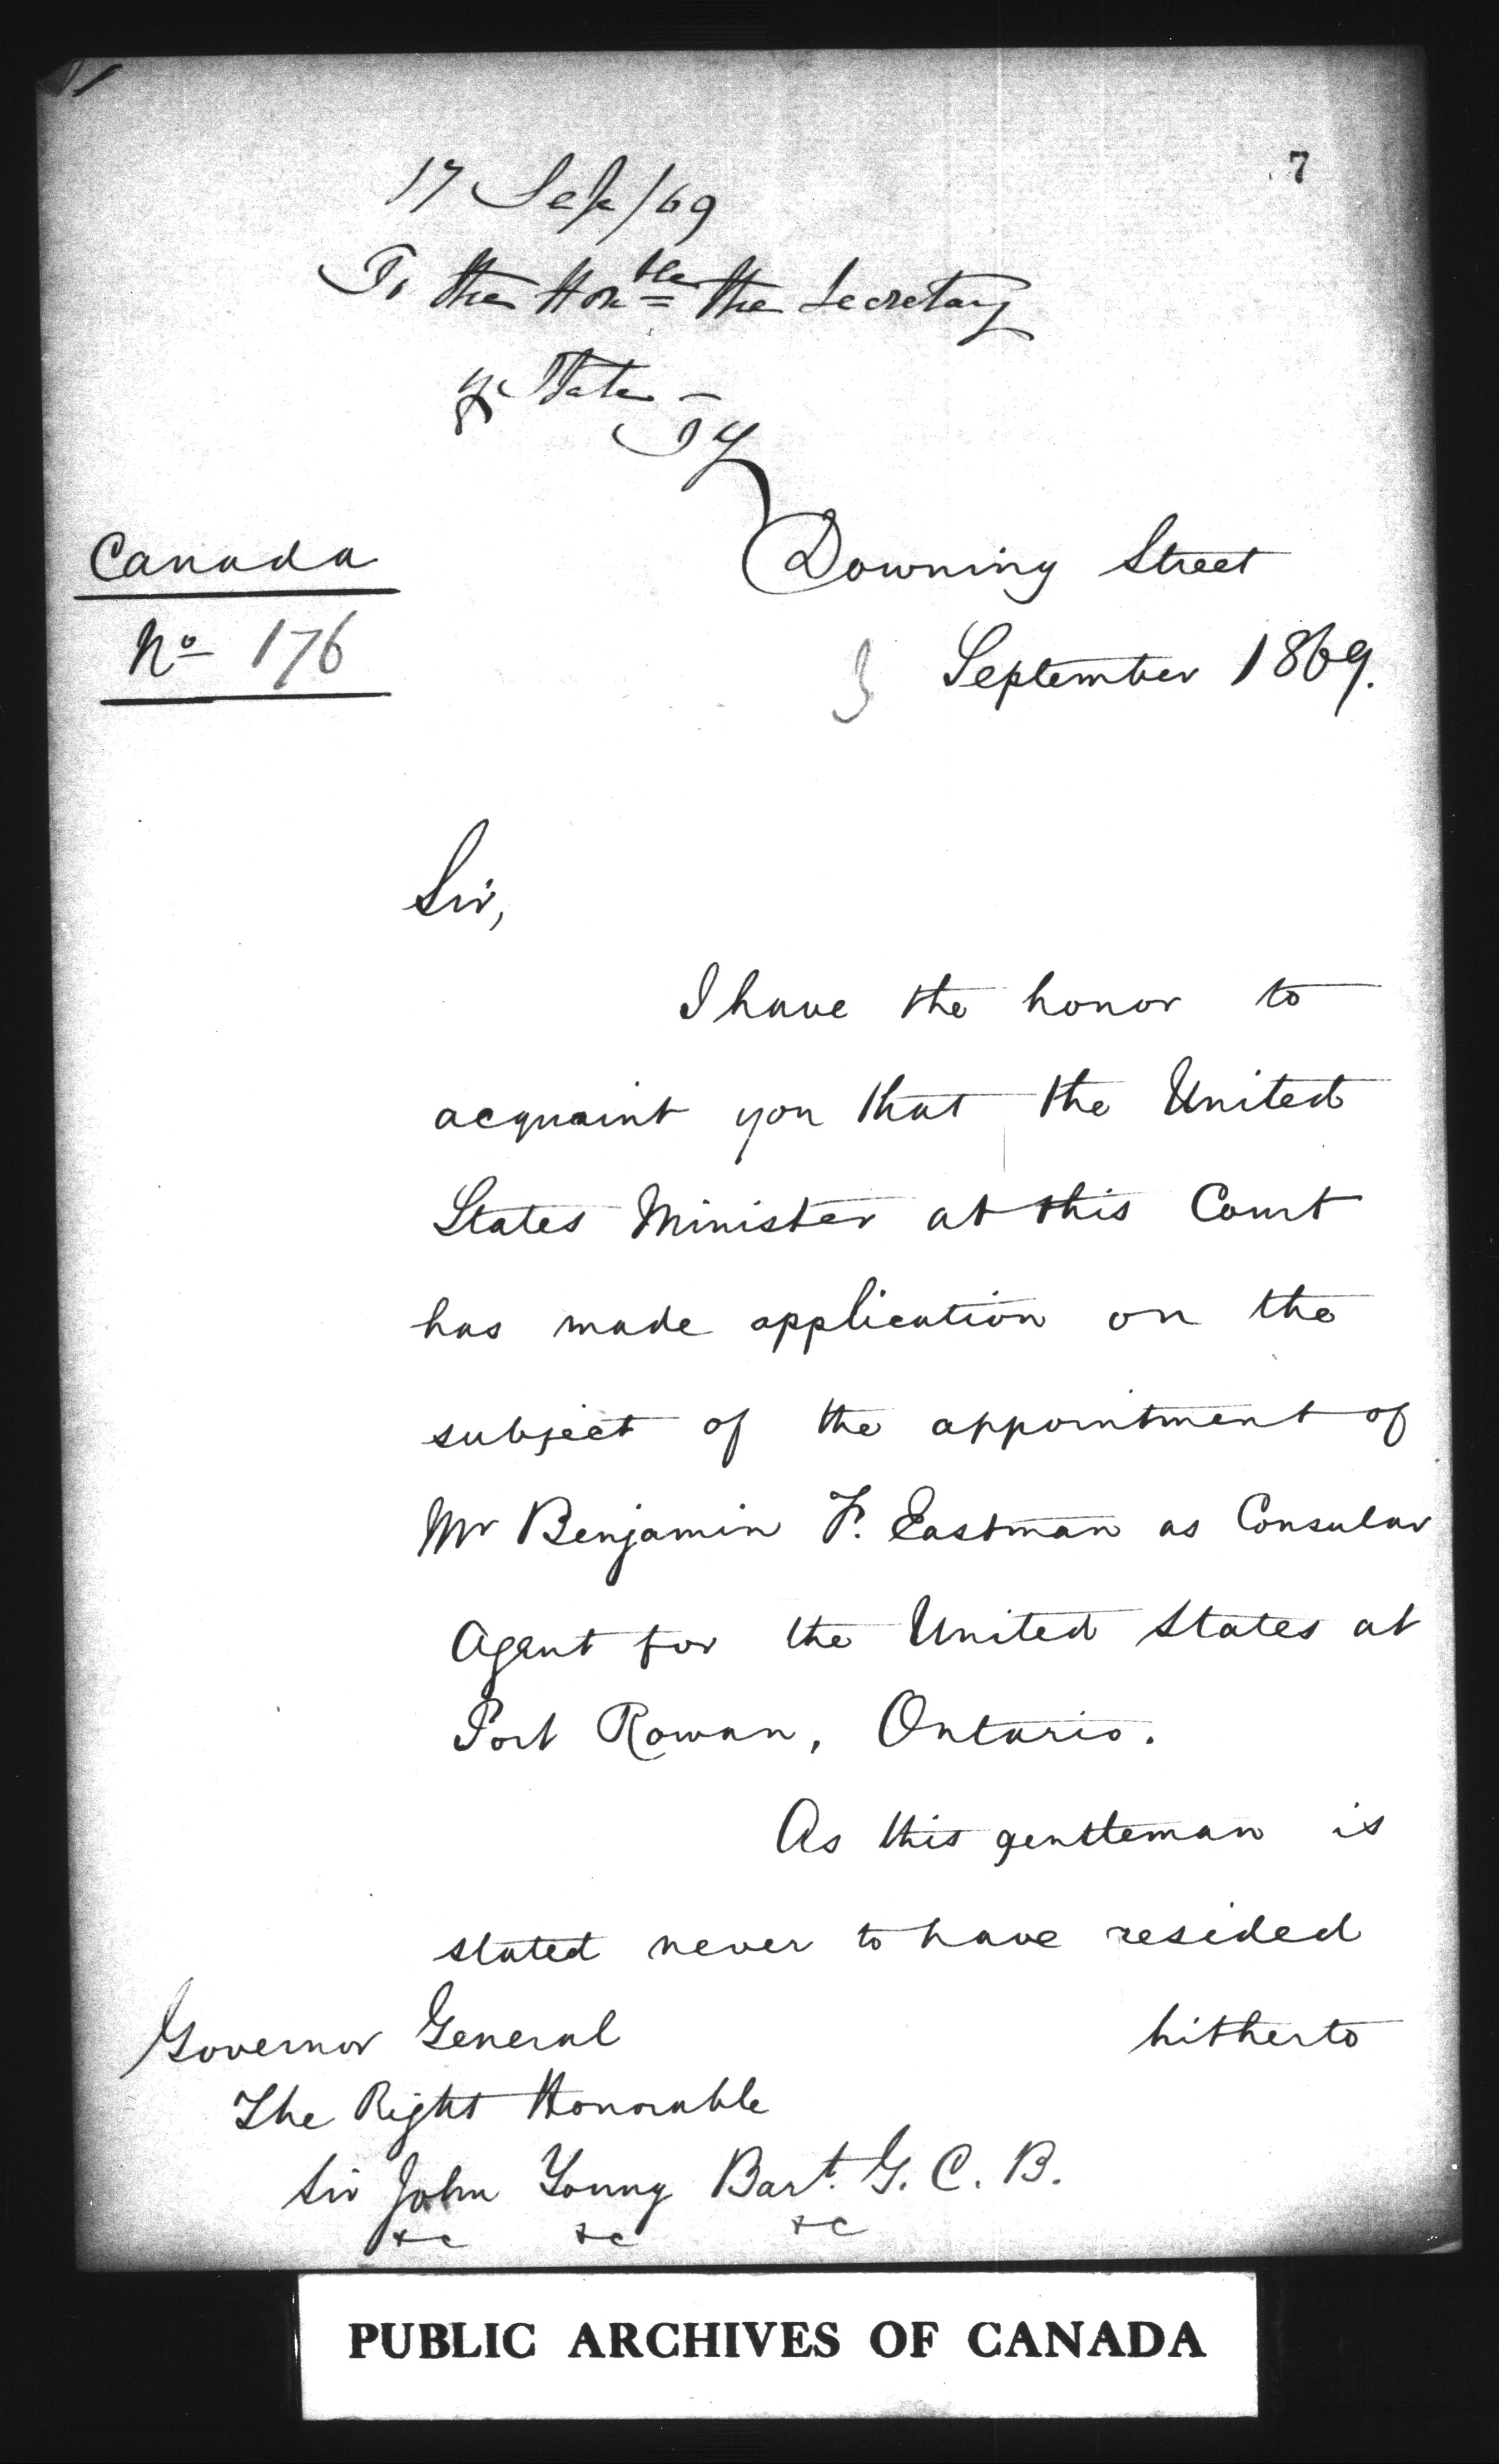 7
17 Sep/69
To the Honble the Secretary
of State —
JY
Canada
No 176
Downing Street
3 September 1869.
Sir,
I have the honor to
acquaint you that the United
States Minister at this Court
has made application on the
subject of the appointment of
Mr Benjamin F. Eastman as Consular
Agent for the United States at
Port Rowan, Ontario.
As this gentleman is
stated never to have resided
hitherto
Governor General
The Right Honorable
Sir John Young Bart. G. C. B.
&c &c &c
PUBLIC ARCHIVES OF CANADA